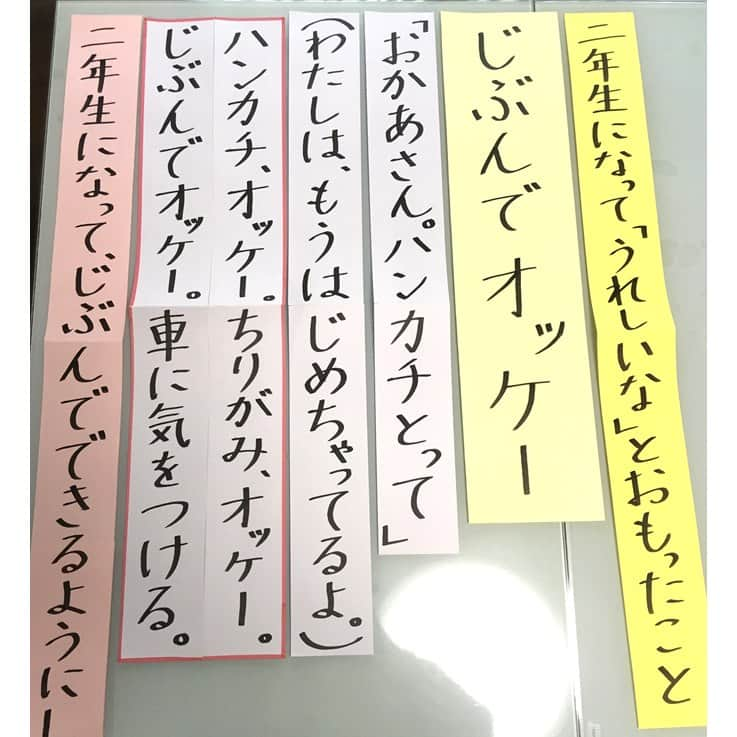 二年生になって「うれしいな」とおもったこと
じぶんでオッケー
「おかあさん。ハンカチとって」
(わたしは、もうはじめちゃってるよ。)
ハンカチ、オッケー。ちりがみ、オッケー。
じぶんでオッケー。車に気をつける。
二年生になって、じぶんでできるように